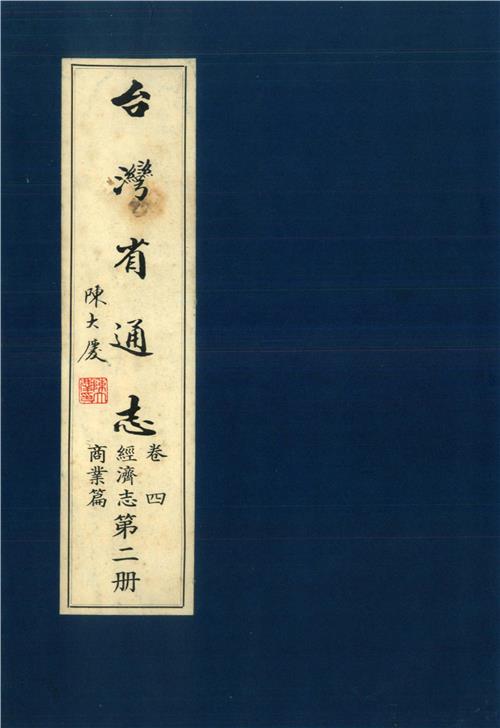 台灣省通志
卷四
經濟志第二册
商業篇
陳大慶